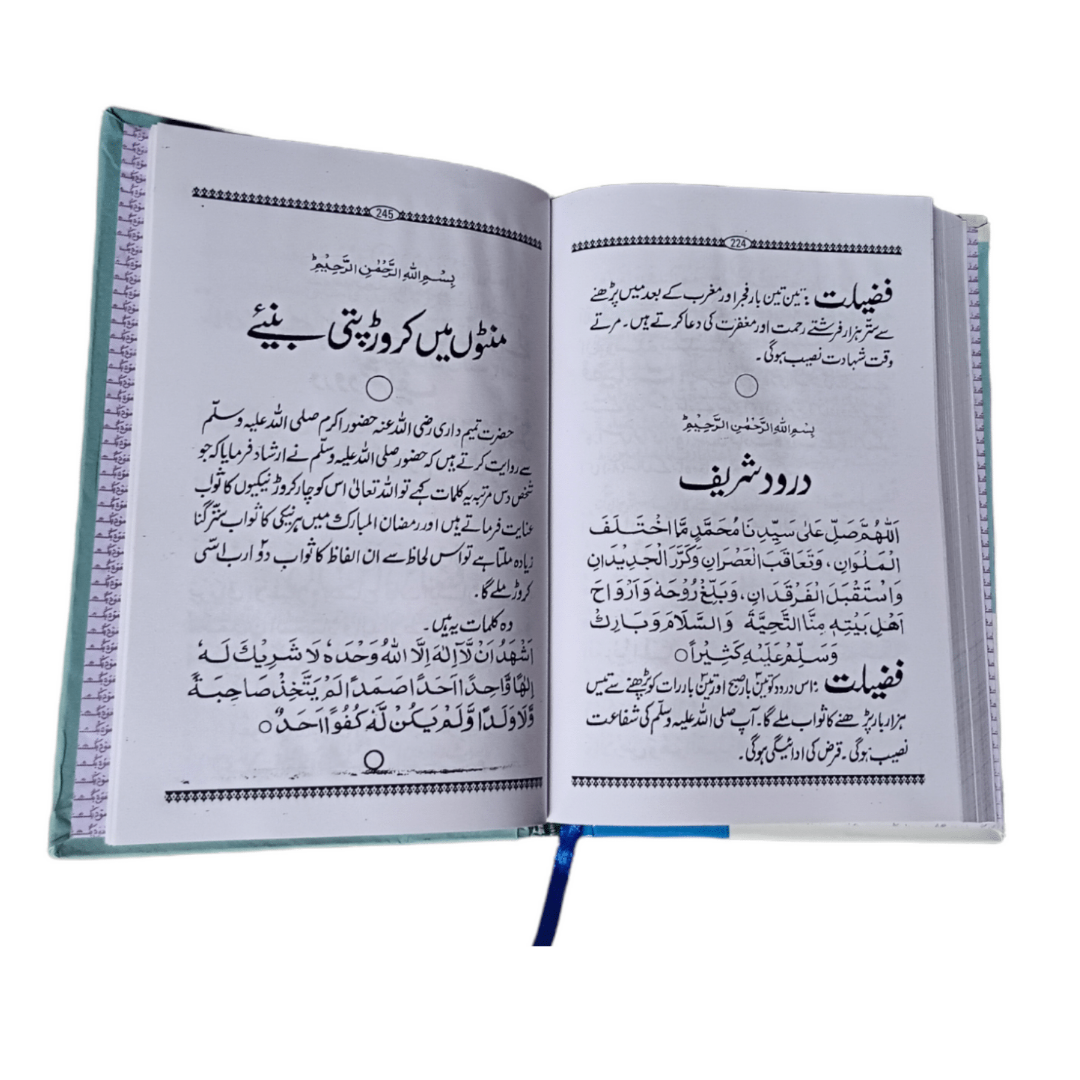 224
فضیلت : تین تین بار فجر اور مغرب کے بعد میں پڑھنے
سے ستّر ہزار فرشتے رحمت اور مغفرت کی دعا کرتے ہیں۔ مرتے
وقت شہادت نصیب ہوگی۔
بِسْمِ اللهِ الرَّحْمٰنِ الرَّحِيْمِ
درود شریف
اَللّٰهُمَّ صَلِّ عَلٰى سَيِّدِنَا مُحَمَّدٍ مَّا اخْتَلَفَ
الْمَلَوَانِ، وَتَعَاقَبَ الْعَصْرَانِ وَكَرَّرَ الْجَدِيْدَانِ
وَاسْتَقْبَلَ الْفَرْقَدَانِ، وَبَلِّغْ رُوْحَهٗ وَاَرْوَاحَ
اَهْلِ بَيْتِهٖ مِنَّا التَّحِيَّةَ وَالسَّلَامَ وَبَارِكْ
وَسَلِّمْ عَلَيْهِ كَثِيْرًا ○
فضیلت : اس درود کو تین بار صبح اور تین بار رات کو پڑھنے سے تیس
ہزار بار پڑھنے کا ثواب ملے گا۔ آپ صلی اللہ علیہ وسلّم کی شفاعت
نصیب ہوگی۔ قرض کی ادائیگی ہوگی۔
245
بِسْمِ اللهِ الرَّحْمٰنِ الرَّحِيْمِ
منٹوں میں کروڑ پتی بنیئے
حضرت تمیم داری رضی اللہ عنہ حضور اکرم صلی اللہ علیہ وسلّم
سے روایت کرتے ہیں کہ حضور صلی اللہ علیہ وسلّم نے ارشاد فرمایا کہ جو
شخص دس مرتبہ یہ کلمات کہے تو اللہ تعالیٰ اس کو چار کروڑ نیکیوں کا ثواب
عنایت فرماتے ہیں اور رمضان المبارک میں ہر نیکی کا ثواب ستّر گنا
زیادہ ملتا ہے تو اس لحاظ سے ان الفاظ کا ثواب دو ارب اسّی
کروڑ ملے گا۔
وہ کلمات یہ ہیں۔
اَشْهَدُ اَنْ لَّا اِلٰهَ اِلَّا اللهُ وَحْدَهٗ لَا شَرِيْكَ لَهٗ
اِلٰهًا وَّاحِدًا اَحَدًا صَمَدًا لَمْ يَتَّخِذْ صَاحِبَةً
وَّلَا وَلَدًا وَّلَمْ يَكُنْ لَّهٗ كُفُوًا اَحَدٌ ○